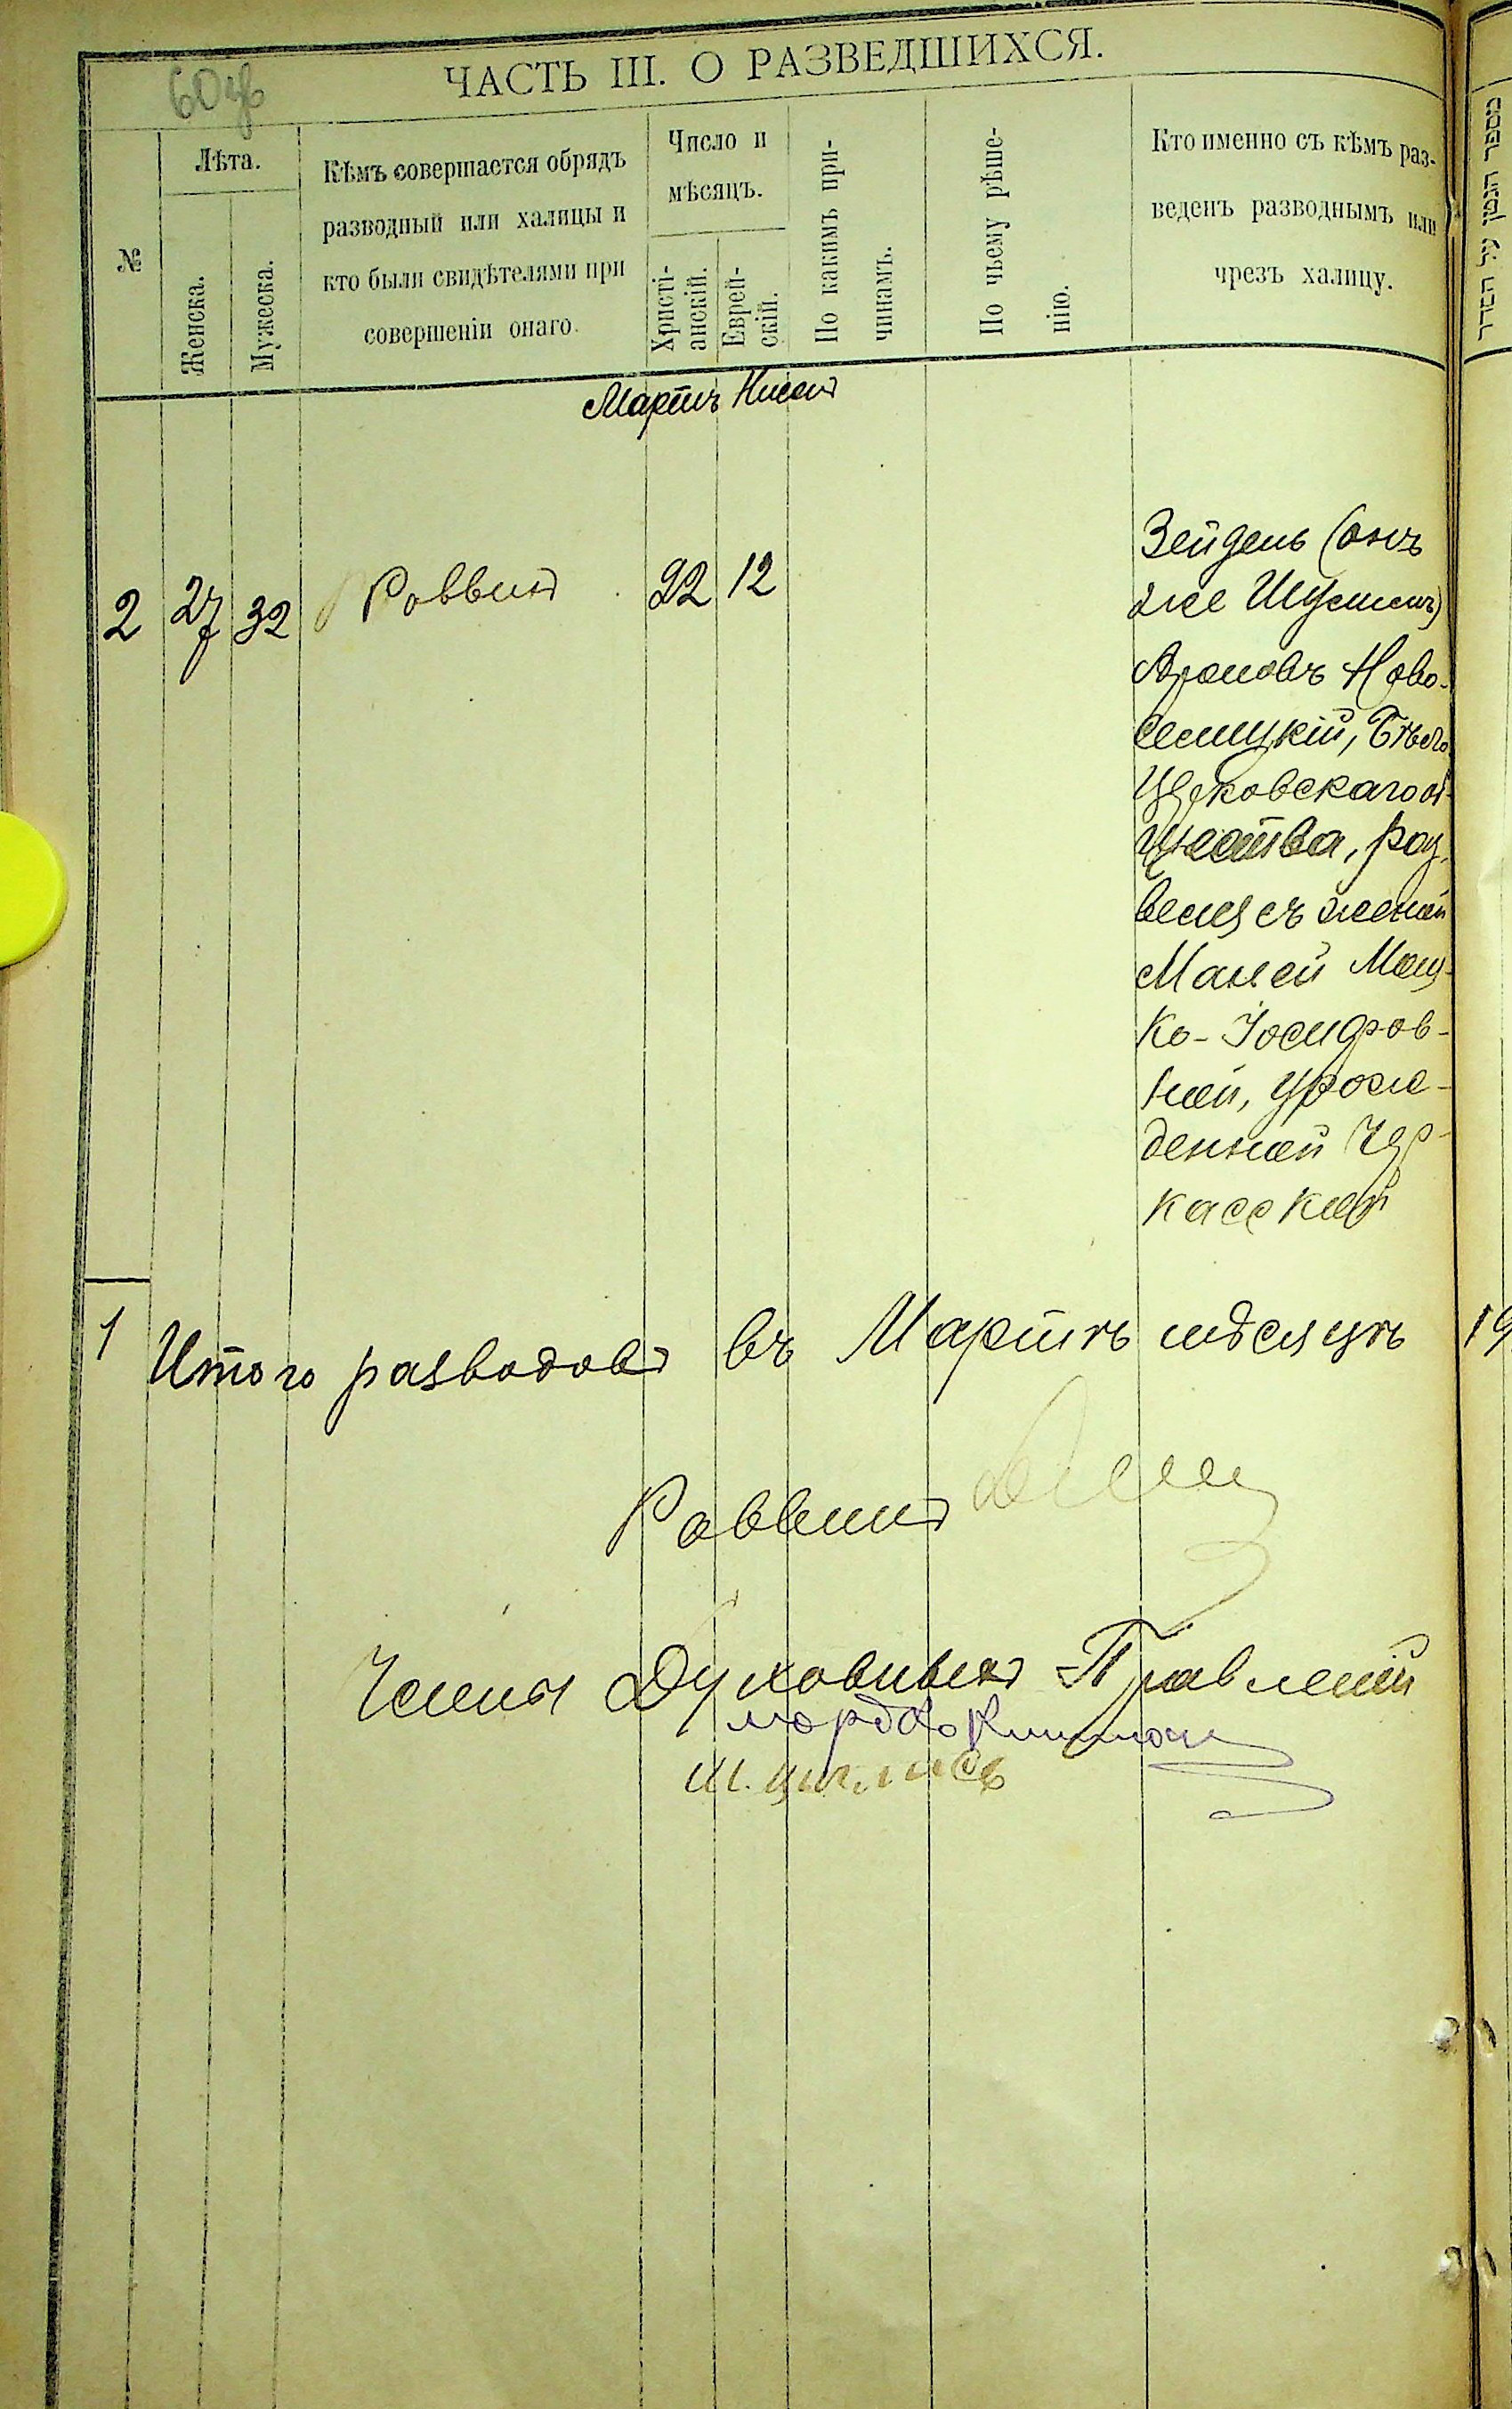 60 об
ЧАСТЬ III. О РАЗВЕДШИХСЯ.
№
Лѣта.
Женска.
Мужеска.
Кѣмъ совершается обрядъ
разводный или халицы и
кто были свидѣтелями при
совершеніи онаго.
Число и
мѣсяцъ.
Христі-
анскій.
Еврей-
скій.
По какимъ при-
чинамъ.
По чьему рѣше-
нію.
Кто именно съ кѣмъ раз-
веденъ разводнымъ или
чрезъ халицу.
מספר הגטין על הסדר
Мартъ Нисанъ
2 27 32 Раввинъ 22 12
Зейдель (онъ
же Шусменъ)
Ароновъ Ново-
селицкій, Бѣло
Церковскаго об-
щества, раз-
велся съ женой
Маней Мош-
ко-Іосифов-
ной, урож-
денной Чер-
касской
1 Итого разводовъ въ Мартѣ мѣсяцѣ 19
Раввинъ
Члены Духовныхъ Правленій
Мордко
Ш.